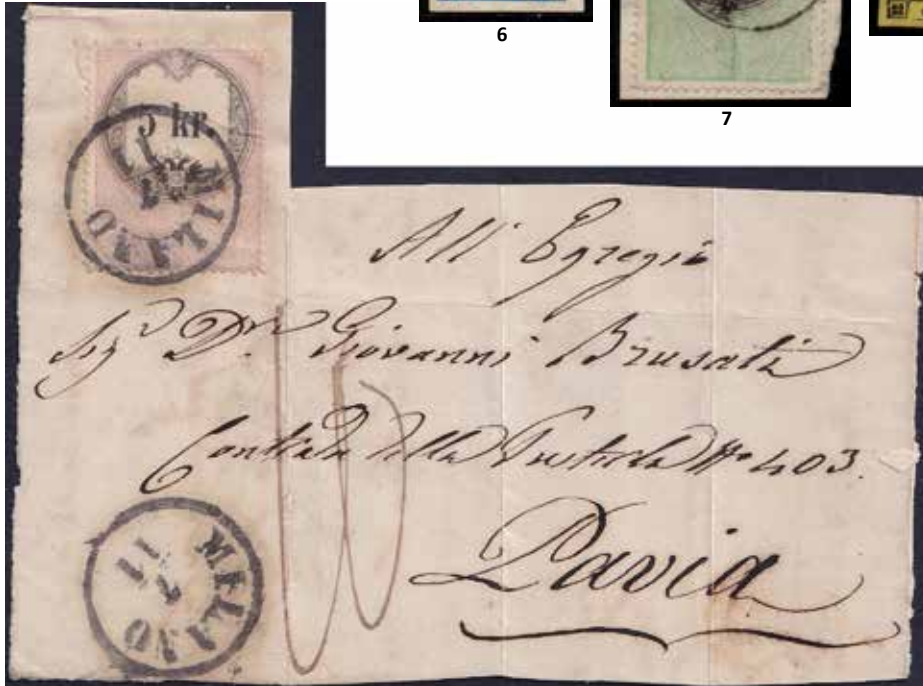 6
7
5 kr.
MILANO
11
All' Egregio
Sig.r D.r Giovanni Brusati
Contrada della N.o 403.
Pavia
MILANO
11